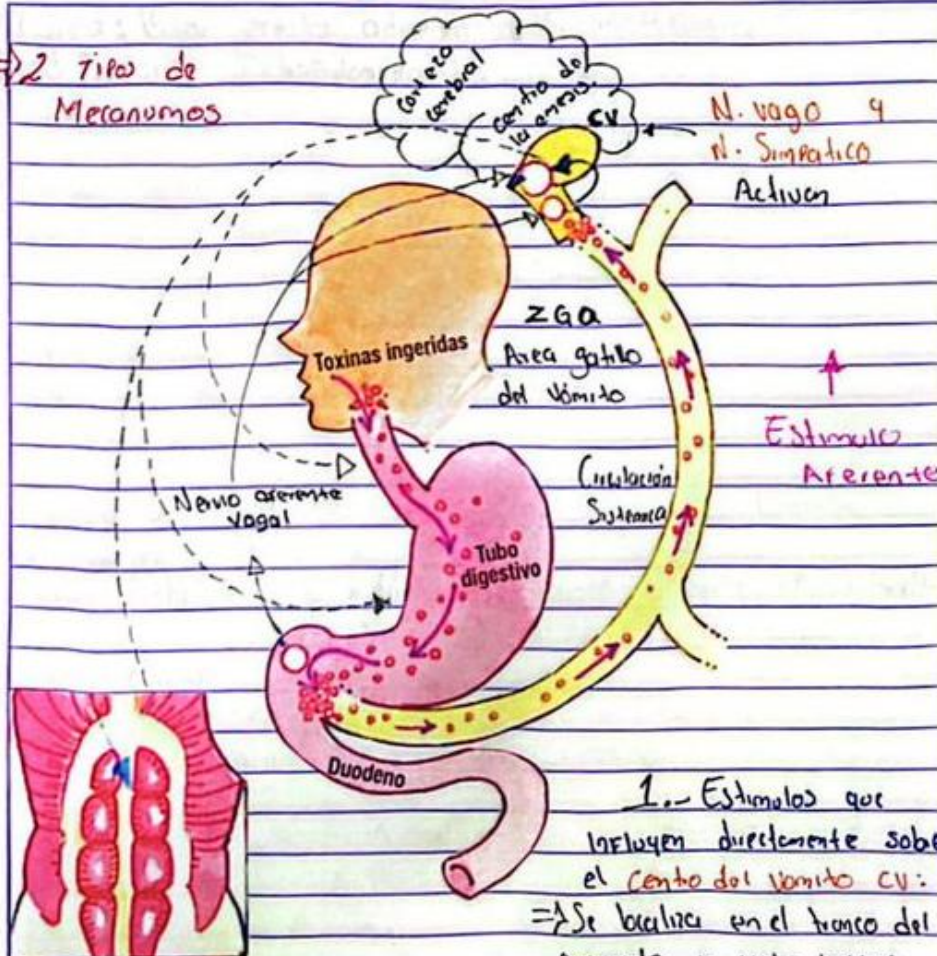 => 2 Tipos de
Mecanismos
Corteza
cerebral
Centro de
la emesis.
CV
N. Vago y
N. Simpatico
Activan
ZGQ
Area gatillo
del Vómito
Toxinas ingeridas
Estimulo
Aferente
Nervio aferente
Vagal
Circulación
Sistemica
Tubo
digestivo
Duodeno
1.- Estimulos que
influyen directamente sobre
el Centro del Vomito CV:
=> Se localiza en el tronco del